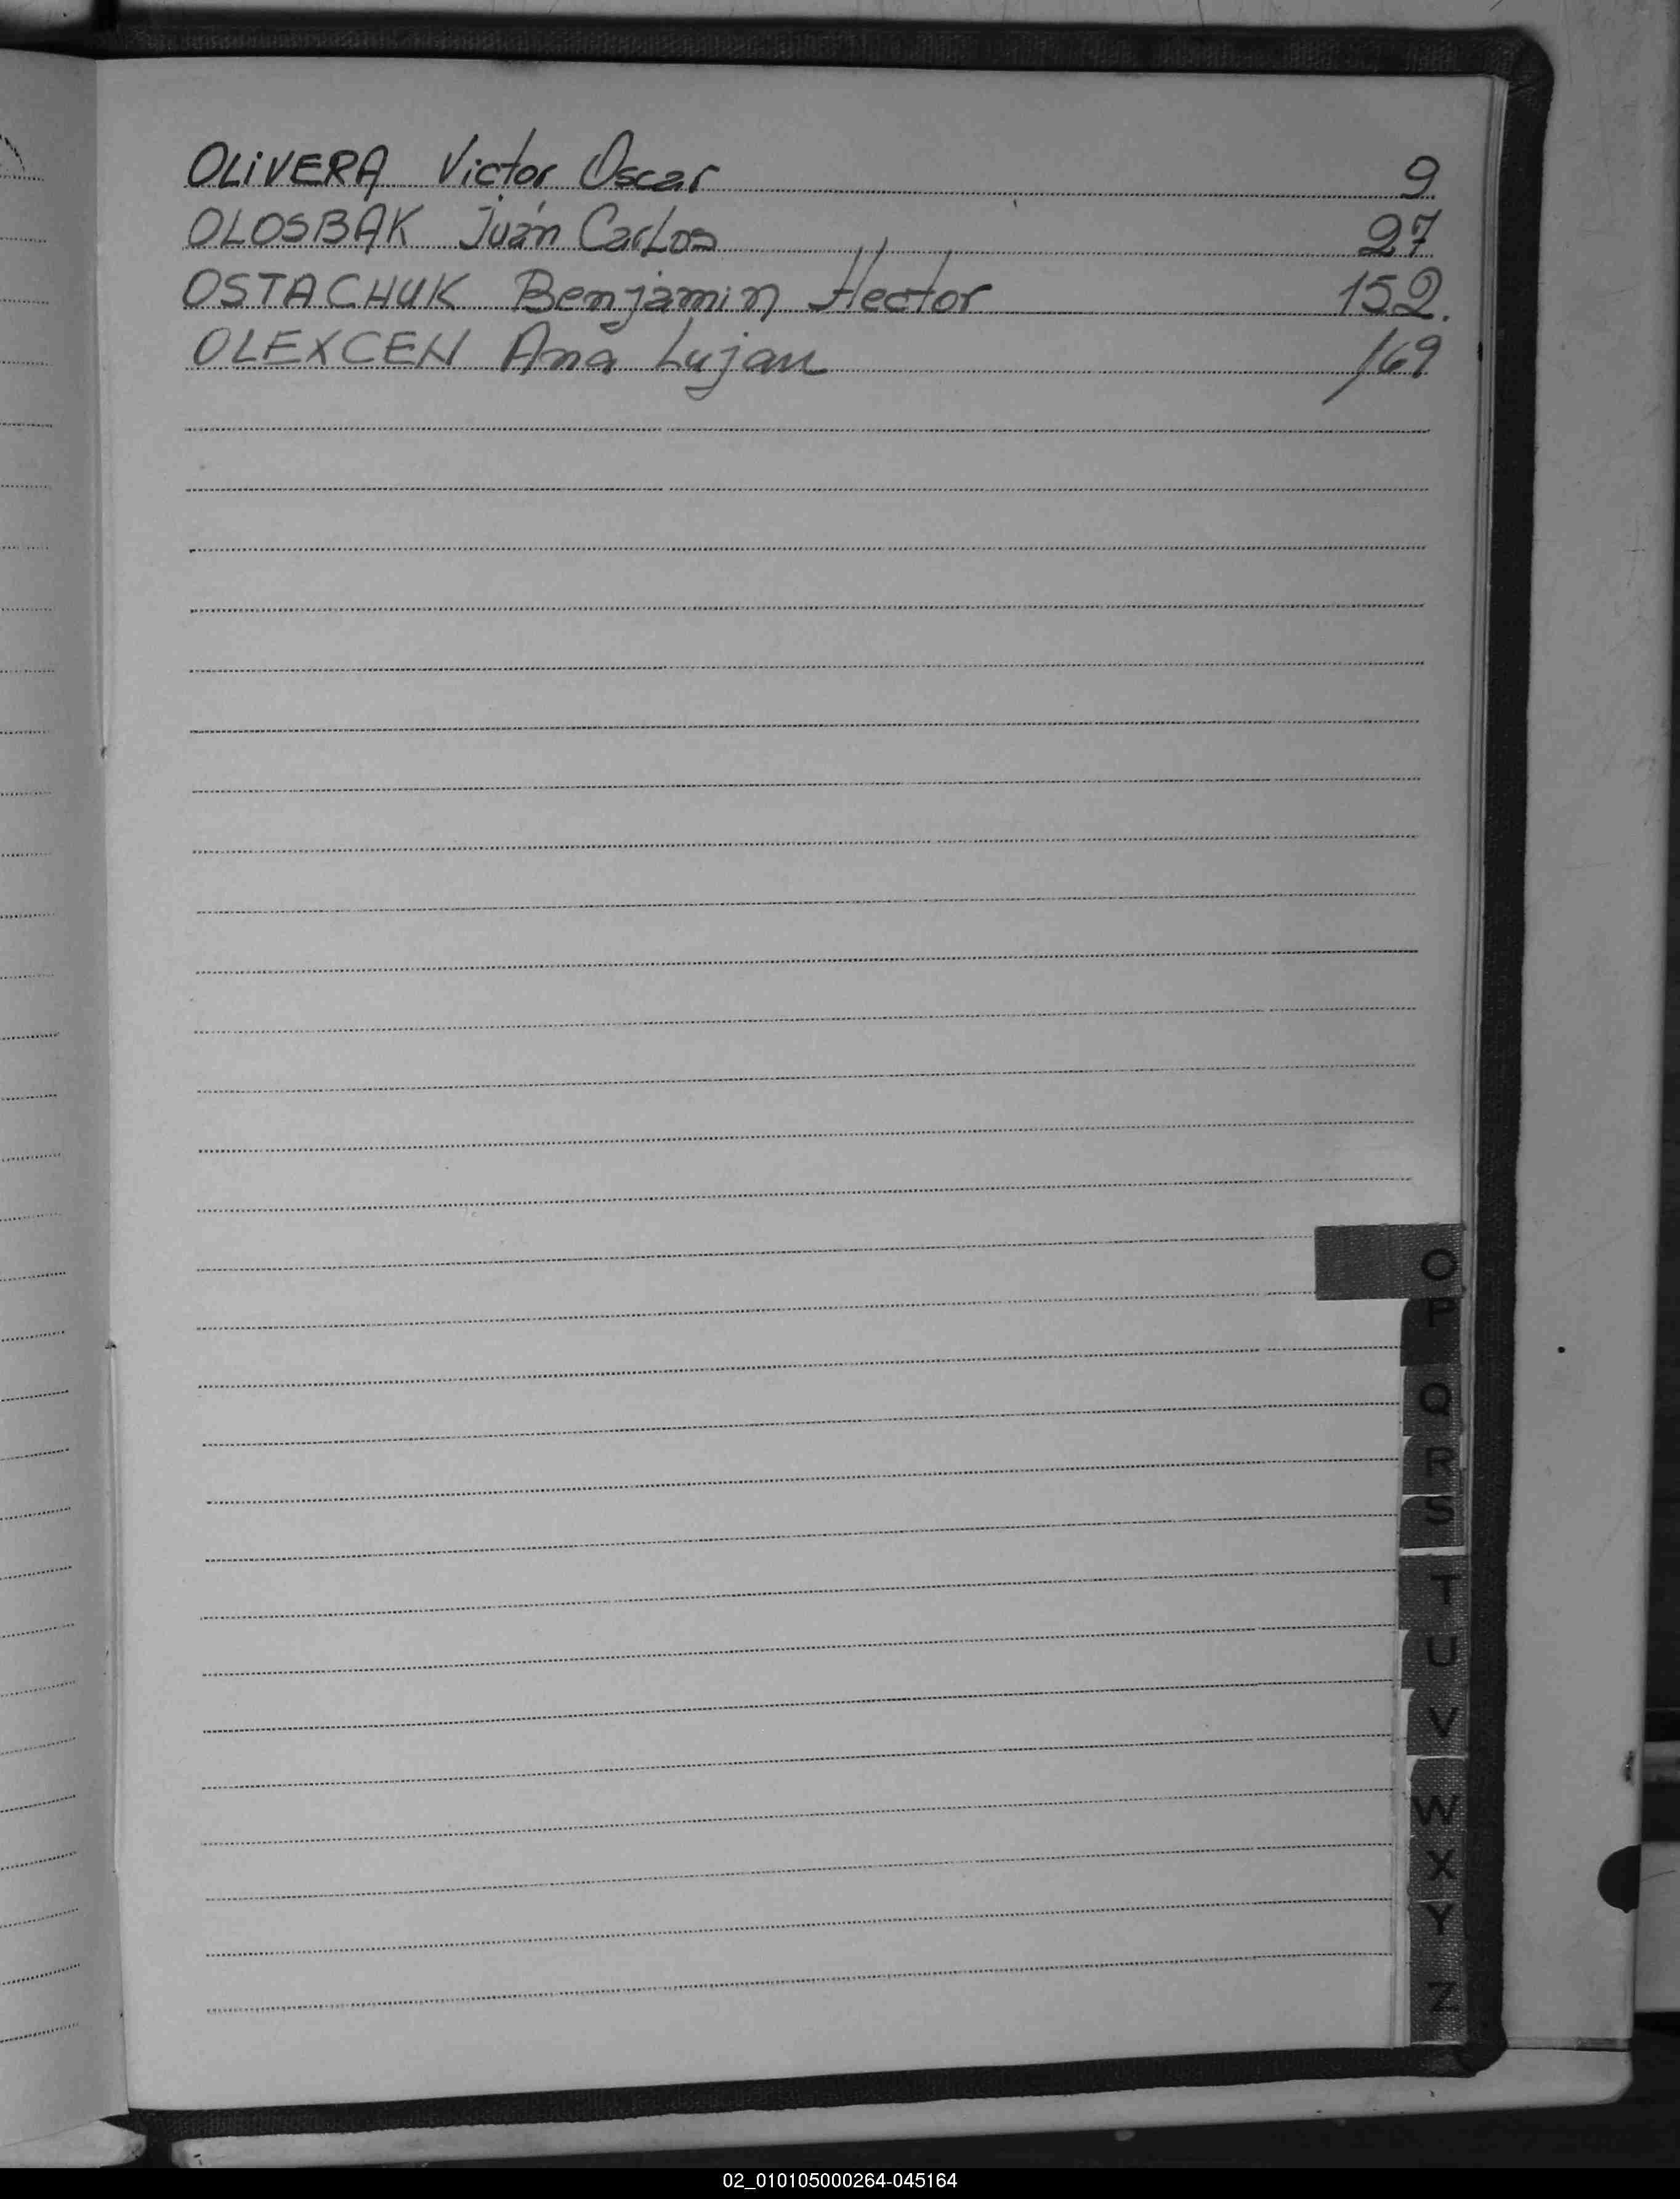 OLiVERA Victor Oscar 9
OLOSBAK Juán Carlos 27
OSTACHUK Benjamin Hector 152.
OLEXCEN Ana Lujan 169
O
P
Q
R
S
T
U
V
W
X
Y
Z
02_010105000264-045164